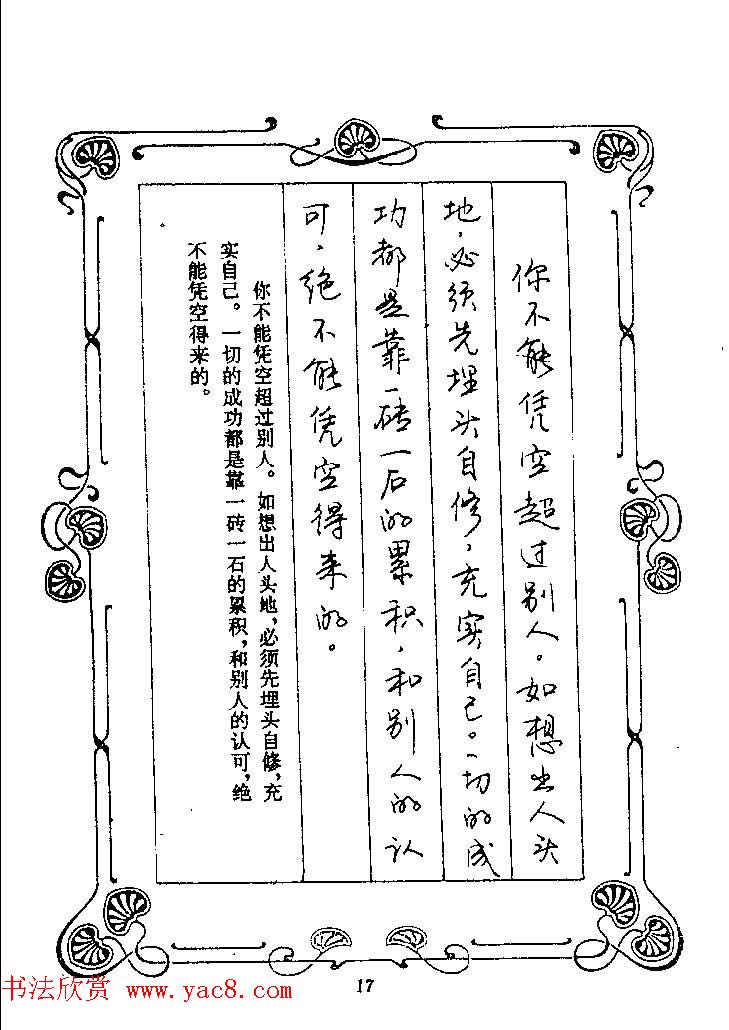 你不能凭空超过别人。如想出人头
地,必须先埋头自修,充实自己。一切的成
功都是靠一砖一石的累积,和别人的认
可,绝不能凭空得来的。
你不能凭空超过别人。如想出人头地,必须先埋头自修,充
实自己。一切的成功都是靠一砖一石的累积,和别人的认可,绝
不能凭空得来的。
17
书法欣赏 www.yac8.com